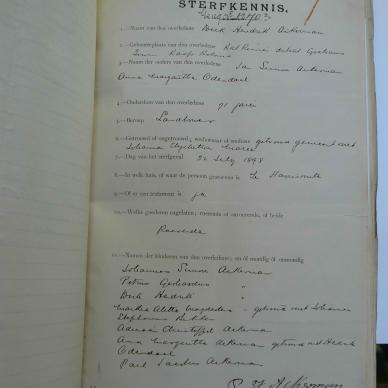 STERFKENNIS,
1.—Naam van den overledene Dirk Hendrik Ackerman
2.—Geboorteplaats van den overledene
Kaap Kolonie
3.—Namen der ouders van den overledene Jan Ackerman
Anna Margaritha Odendaal
4.—Ouderdom van den overledene 71 jaren
5.—Beroep Landbouwer
6.—Getrouwd of ongetrouwd; weduwnaar of weduwe getrouwd gemeenschap met
Johanna Elizabetha
7.—Dag van het sterfgeval 22 July 1898
8.—In welk huis, of waar de persoon gestorven is Te Harrismith
9.—Of er een testament is ja
10.—Welke goederen nagelaten; roerende of onroerende, of beide
Roerende
11.—Namen der kinderen van den overledene; en of mondig of onmondig
Johannes Ackerman
Petrus Gerhardus "
Dirk Hendrik "
Martha Aletta Magdalena getrouwd met Johannes
Stephanus
Adriaan Christoffel Ackerman
Anna Margaritha Ackerman getrouwd met Hendrik
Odendaal
Paul Jacobus Ackerman
Ackerman